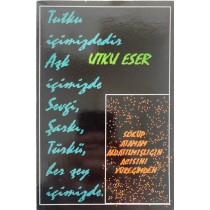 Tutku
içimizdedir
Aşk
içimizde
Sevgi,
Şarkı,
Türkü,
her şey
içimizde.
UTKU ESER
SÖKÜP
ATAMAM
ALDATILMIŞLIĞIN
ACISINI
YÜREĞİMDEN